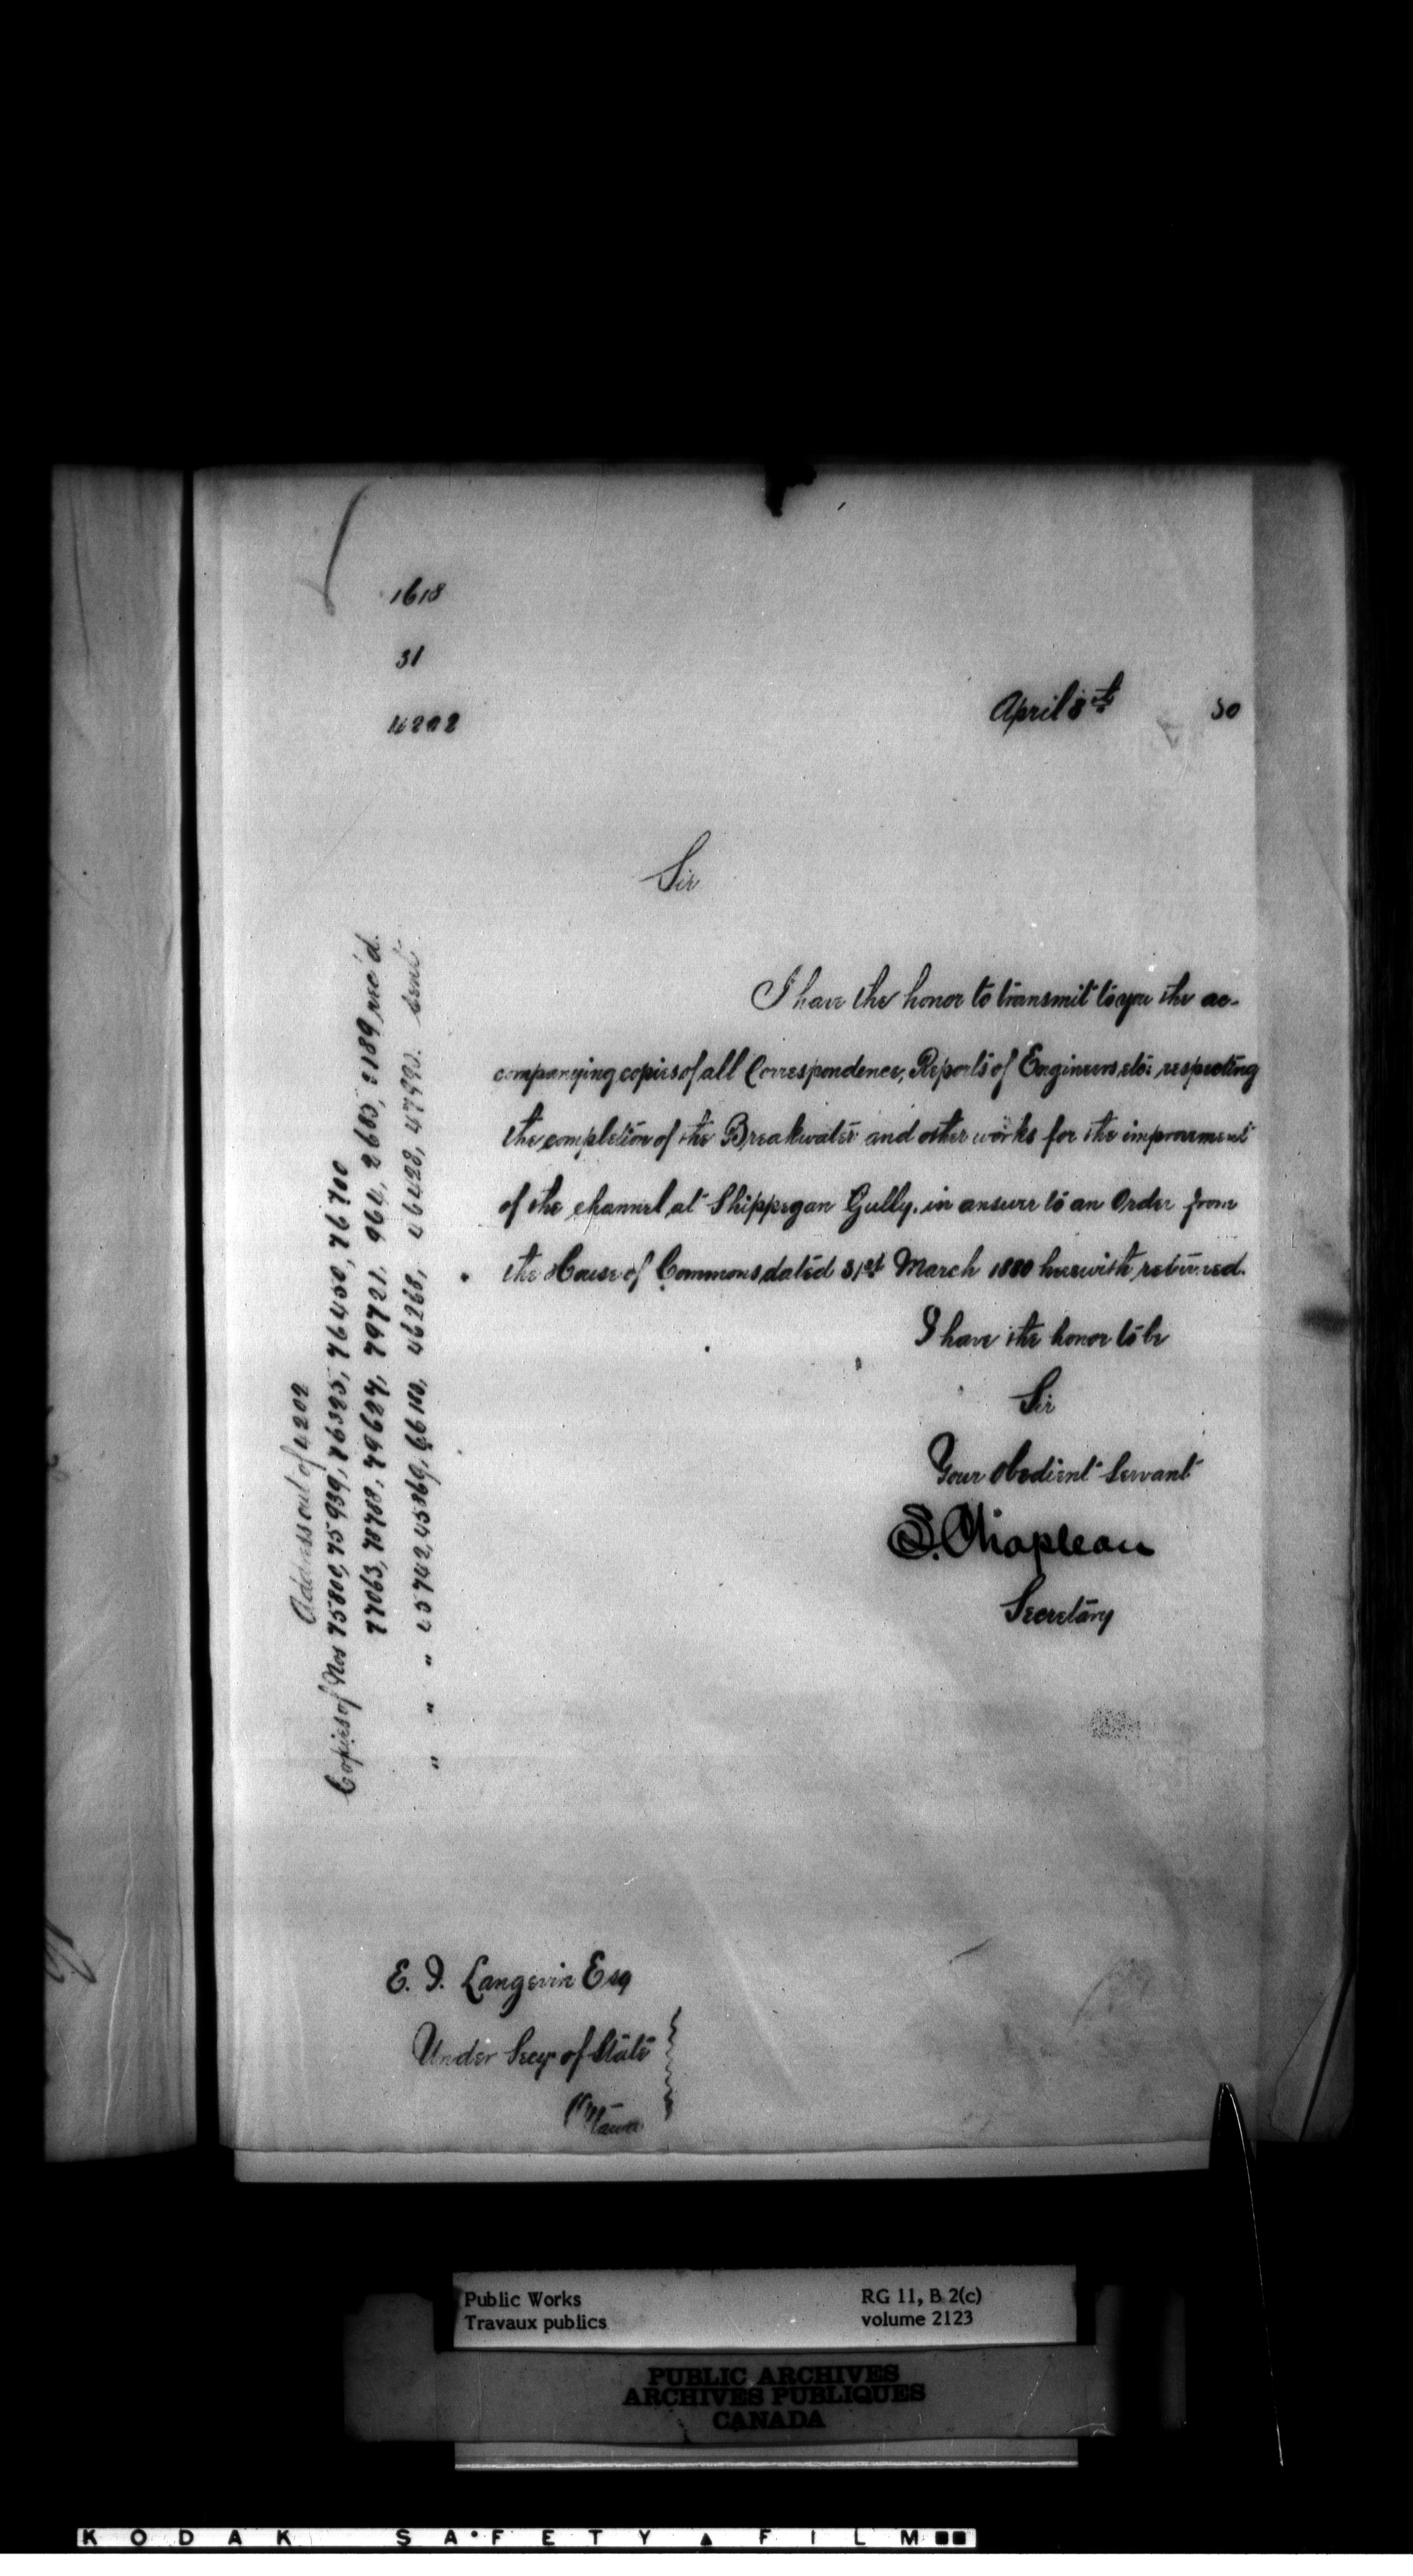 1618
31
4202
April 8th 80
Sir
I have the honor to transmit to you the ac-
companying copies of all Correspondence, Reports of Engineers, etc: respecting
the completion of the Breakwater and other works for the improvement
of the channel at Shippegan Gully. in answer to an Order from
the House of Commons dated 31st March 1880 herewith returned.
I have the honor to be
Sir
Your obedient Servant
S. Chapleau
Secretary
Address out of 4202
Copies of Nos 75800, 75939, 76395, 76450, 76700
77063, 78708, 79627, 79721. 964, 2685, rec'd.
" " " 45742, 45869, 46268, 46428, sent
E. J. Langevin Esq
Under Secy of State
Ottawa
Public Works
Travaux publics
RG 11, B 2(c)
volume 2123
PUBLIC ARCHIVES
ARCHIVES PUBLIQUES
CANADA
KODAK SAFETY FILM